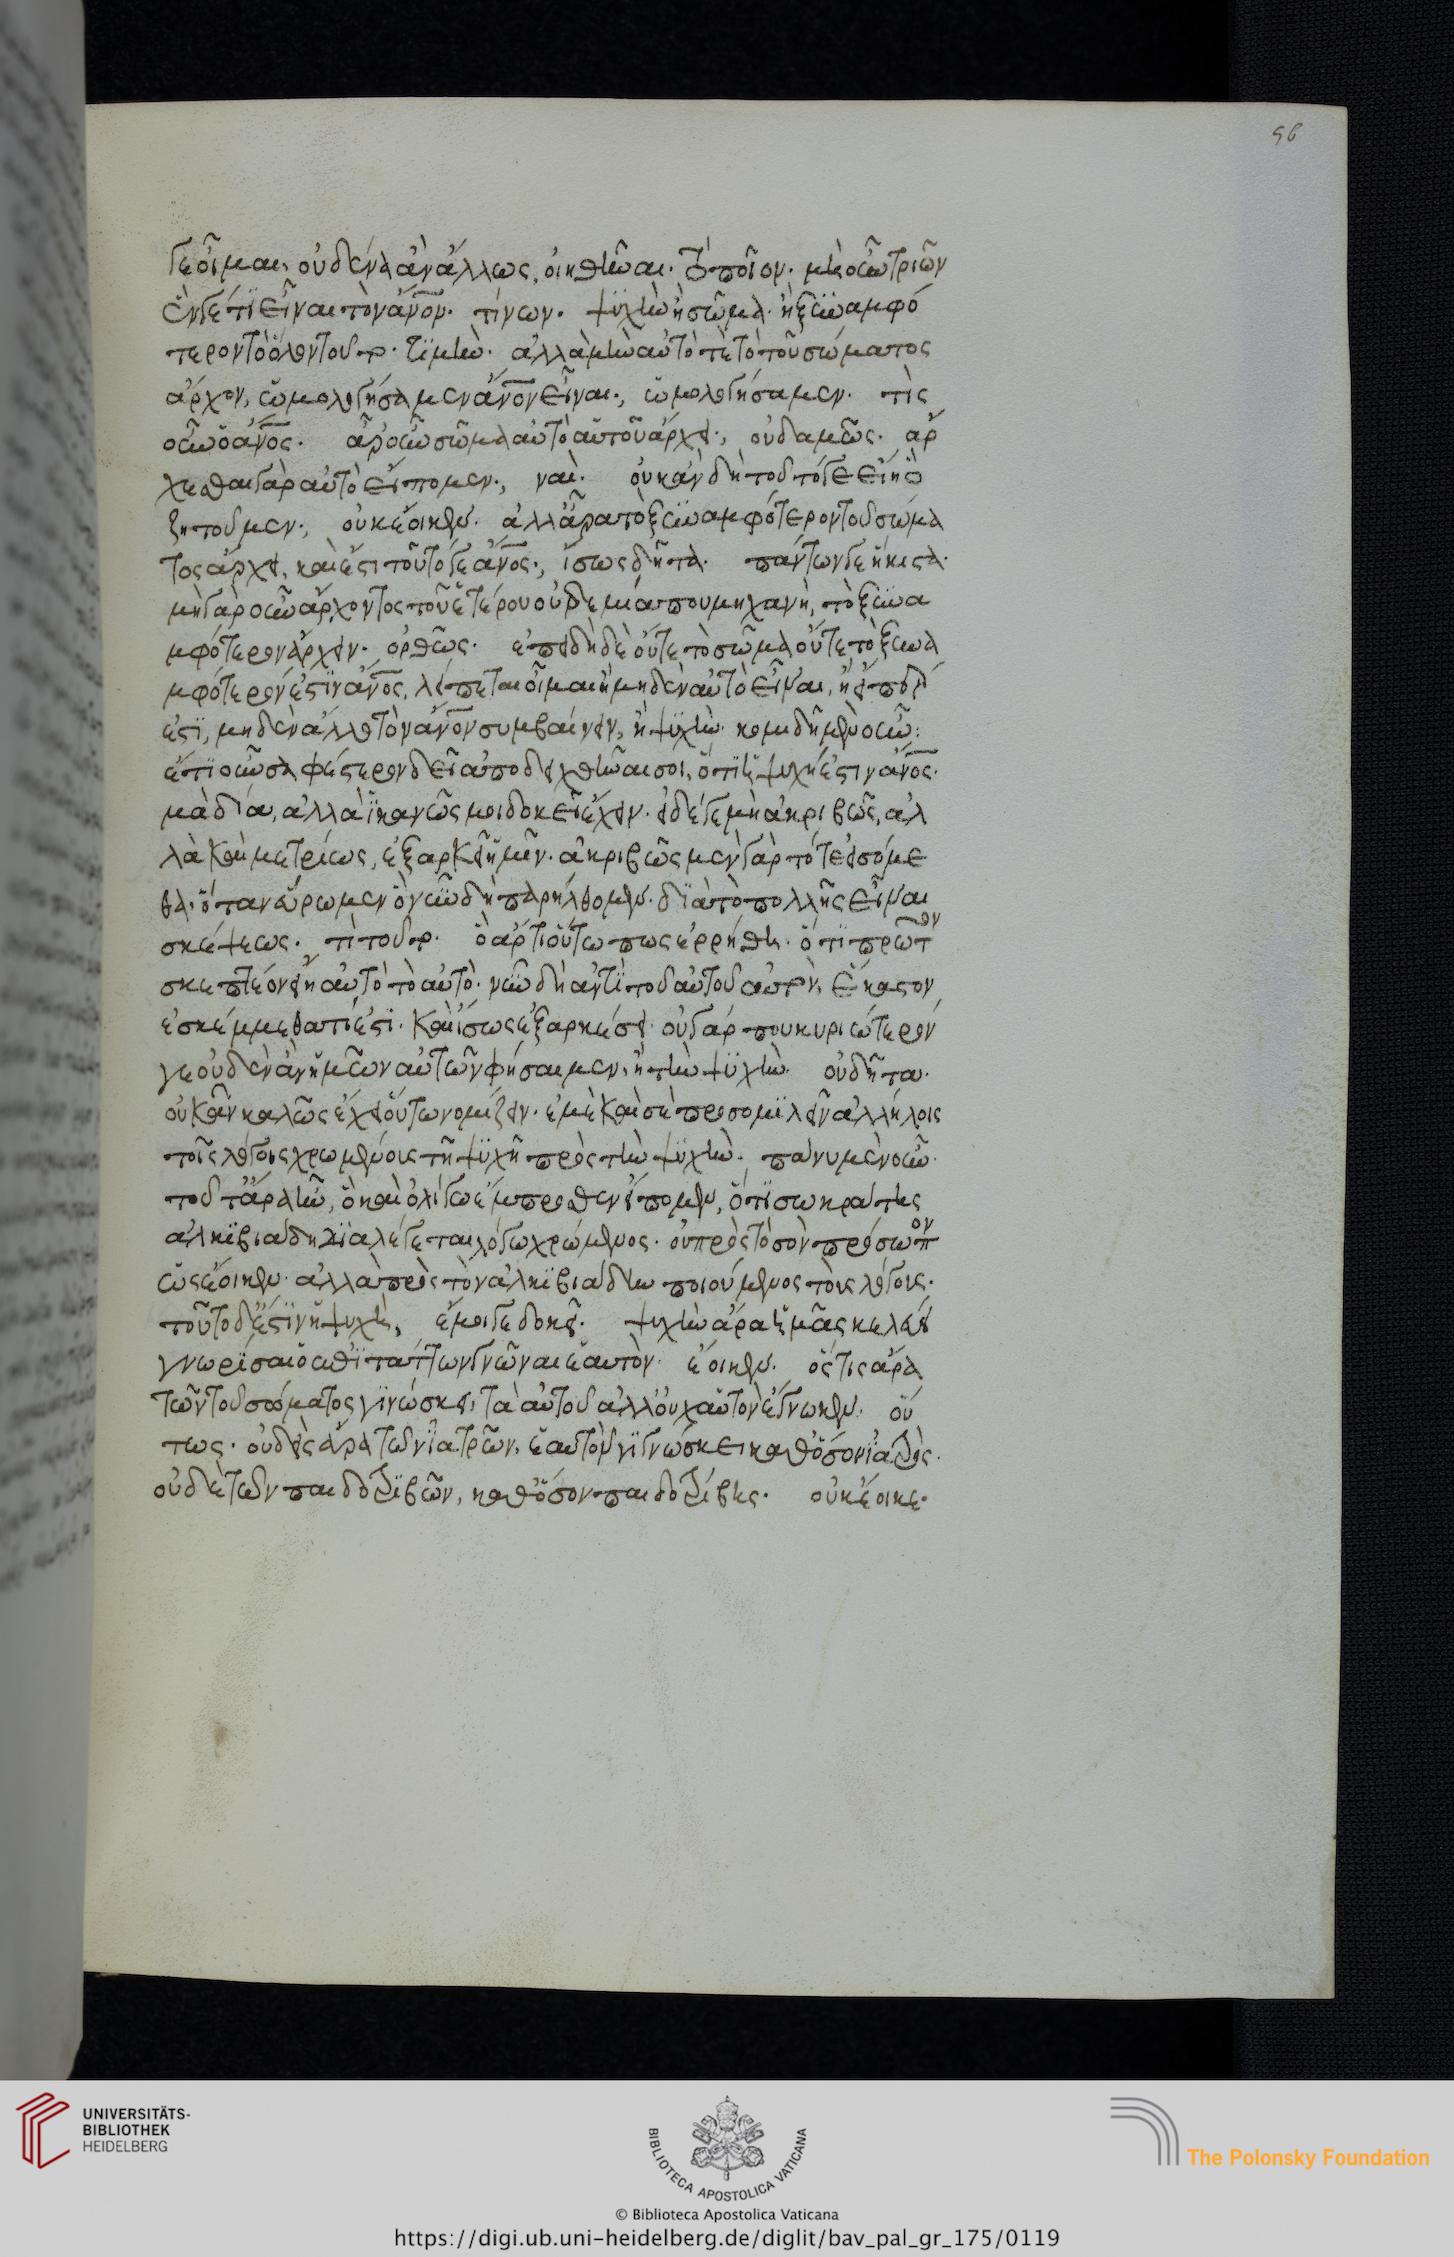 56
γε οἶμαι, οὐδένα ἂν ἄλλως, οἰηθῆναι. τὸ ποῖον. μὴ οὐ τριῶν
ἕν γέ τι εἶναι τὸν ἄνον. τίνων. ψυχὴν ἢ σῶμα. ἢ ξυναμφό
τερον τὸ ὅλον τοῦτο. τί μήν. ἀλλὰ μὴν αὐτό γε τὸ τοῦ σώματος
ἄρχον, ὡμολογήσαμεν ἄνον εἶναι, ὡμολογήσαμεν. τίς
οὖν ὁ ἄνος. ἆρ' οὖν σῶμα αὐτὸ αὑτοῦ ἄρχει, οὐδαμῶς. ἄρ
χεσθαι γὰρ αὐτὸ εἴπομεν, ναί. οὐκ ἂν δὴ τοῦτό γε εἴη ὃ
ζητοῦμεν, οὐκ ἔοικεν. ἀλλ' ἄρα τὸ ξυναμφότερον τοῦ σώμα
τος ἄρχει, καὶ ἔστι τοῦτό γε ἄνος, ἴσως δῆτα. πάντων γε ἥκιστα.
μὴ γὰρ συνάρχοντος τοῦ ἑτέρου οὐδεμία που μηχανὴ, τὸ ξυνα
μφότερον ἄρχειν. ὀρθῶς. ἐπειδὴ δὲ οὔτε τὸ σῶμα οὔτε τὸ ξυνα
μφότερόν ἐστιν ἄνος, λείπεται οἶμαι ἢ μηδὲν αὐτὸ εἶναι, ἢ εἴπερ τί
ἐστι, μηδὲν ἄλλο τὸν ἄνον συμβαίνειν, ἢ ψυχήν. κομιδῇ μὲν οὖν:
ἔτι οὖν σαφέστερον δεῖ ἀποδειχθῆναι σοι, ὅτι ἡ ψυχή ἐστιν ἄνος.
μὰ δία, ἀλλὰ ἱκανῶς μοι δοκεῖ ἔχειν. εἰ δέ γε μὴ ἀκριβῶς, ἀλ
λὰ καὶ μετρίως, ἐξαρκεῖ ἡμῖν. ἀκριβῶς μὲν γὰρ τότε εἰσόμε
θα. ὅταν εὕρωμεν ὃ νῦν δὴ παρήλθομεν. διὰ τὸ πολλῆς εἶναι
σκέψεως. τί τοῦτο. ὃ ἄρτι οὕτω πως ἐρρήθη. ὅτι πρῶτον
σκεπτέον εἴη αὐτὸ τὸ αὐτό. νῦν δὴ ἀντὶ τοῦ αὐτοῦ αὐτὸν, ἕκαστον
ἐσκέμμεθα τί ἐστι. καὶ ἴσως ἐξαρκέσει. οὐ γάρ που κυριώτερόν
γε οὐδὲν ἂν ἡμῶν αὐτῶν φήσαιμεν, ἢ τὴν ψυχήν. οὐ δῆτα.
οὐκοῦν καλῶς ἔχει οὕτω νομίζειν. ἐμὲ καὶ σὲ προσομιλεῖν ἀλλήλοις
τοῖς λόγοις χρωμένοις τῇ ψυχῇ πρὸς τὴν ψυχήν. πάνυ μὲν οὖν.
τοῦτ' ἄρα ἦν, ὃ καὶ ὀλίγω ἔμπροσθεν εἴπομεν, ὅτι σωκράτης
ἀλκιβιάδη διαλέγεται λόγω χρώμενος. οὐ πρὸς τὸ σὸν πρόσωπον
ὡς ἔοικεν. ἀλλὰ πρὸς τὸν ἀλκιβιάδην ποιούμενος τοὺς λόγους.
τοῦτο δέ ἐστιν ἡ ψυχή, ἔμοιγε δοκεῖ. ψυχὴν ἄρα ἡμᾶς κελεύει
γνωρίσαι ὁ ἐπιτάττων γνῶναι ἑαυτόν. ἔοικεν. ὅστις ἄρα
τῶν τοῦ σώματος γινώσκει, τὰ αὑτοῦ ἀλλ' οὐχ αὑτὸν ἔγνωκεν. οὕ
τως. οὐδεὶς ἄρα τῶν ἰατρῶν, ἑαυτὸν γιγνώσκει καθόσον ἰατρός.
οὐδὲ τῶν παιδοτριβῶν, καθόσον παιδοτρίβης. οὐκ ἔοικε.
UNIVERSITÄTS-
BIBLIOTHEK
HEIDELBERG
BIBLIOTECA APOSTOLICA VATICANA
The Polonsky Foundation
© Biblioteca Apostolica Vaticana
https://digi.ub.uni-heidelberg.de/diglit/bav_pal_gr_175/0119